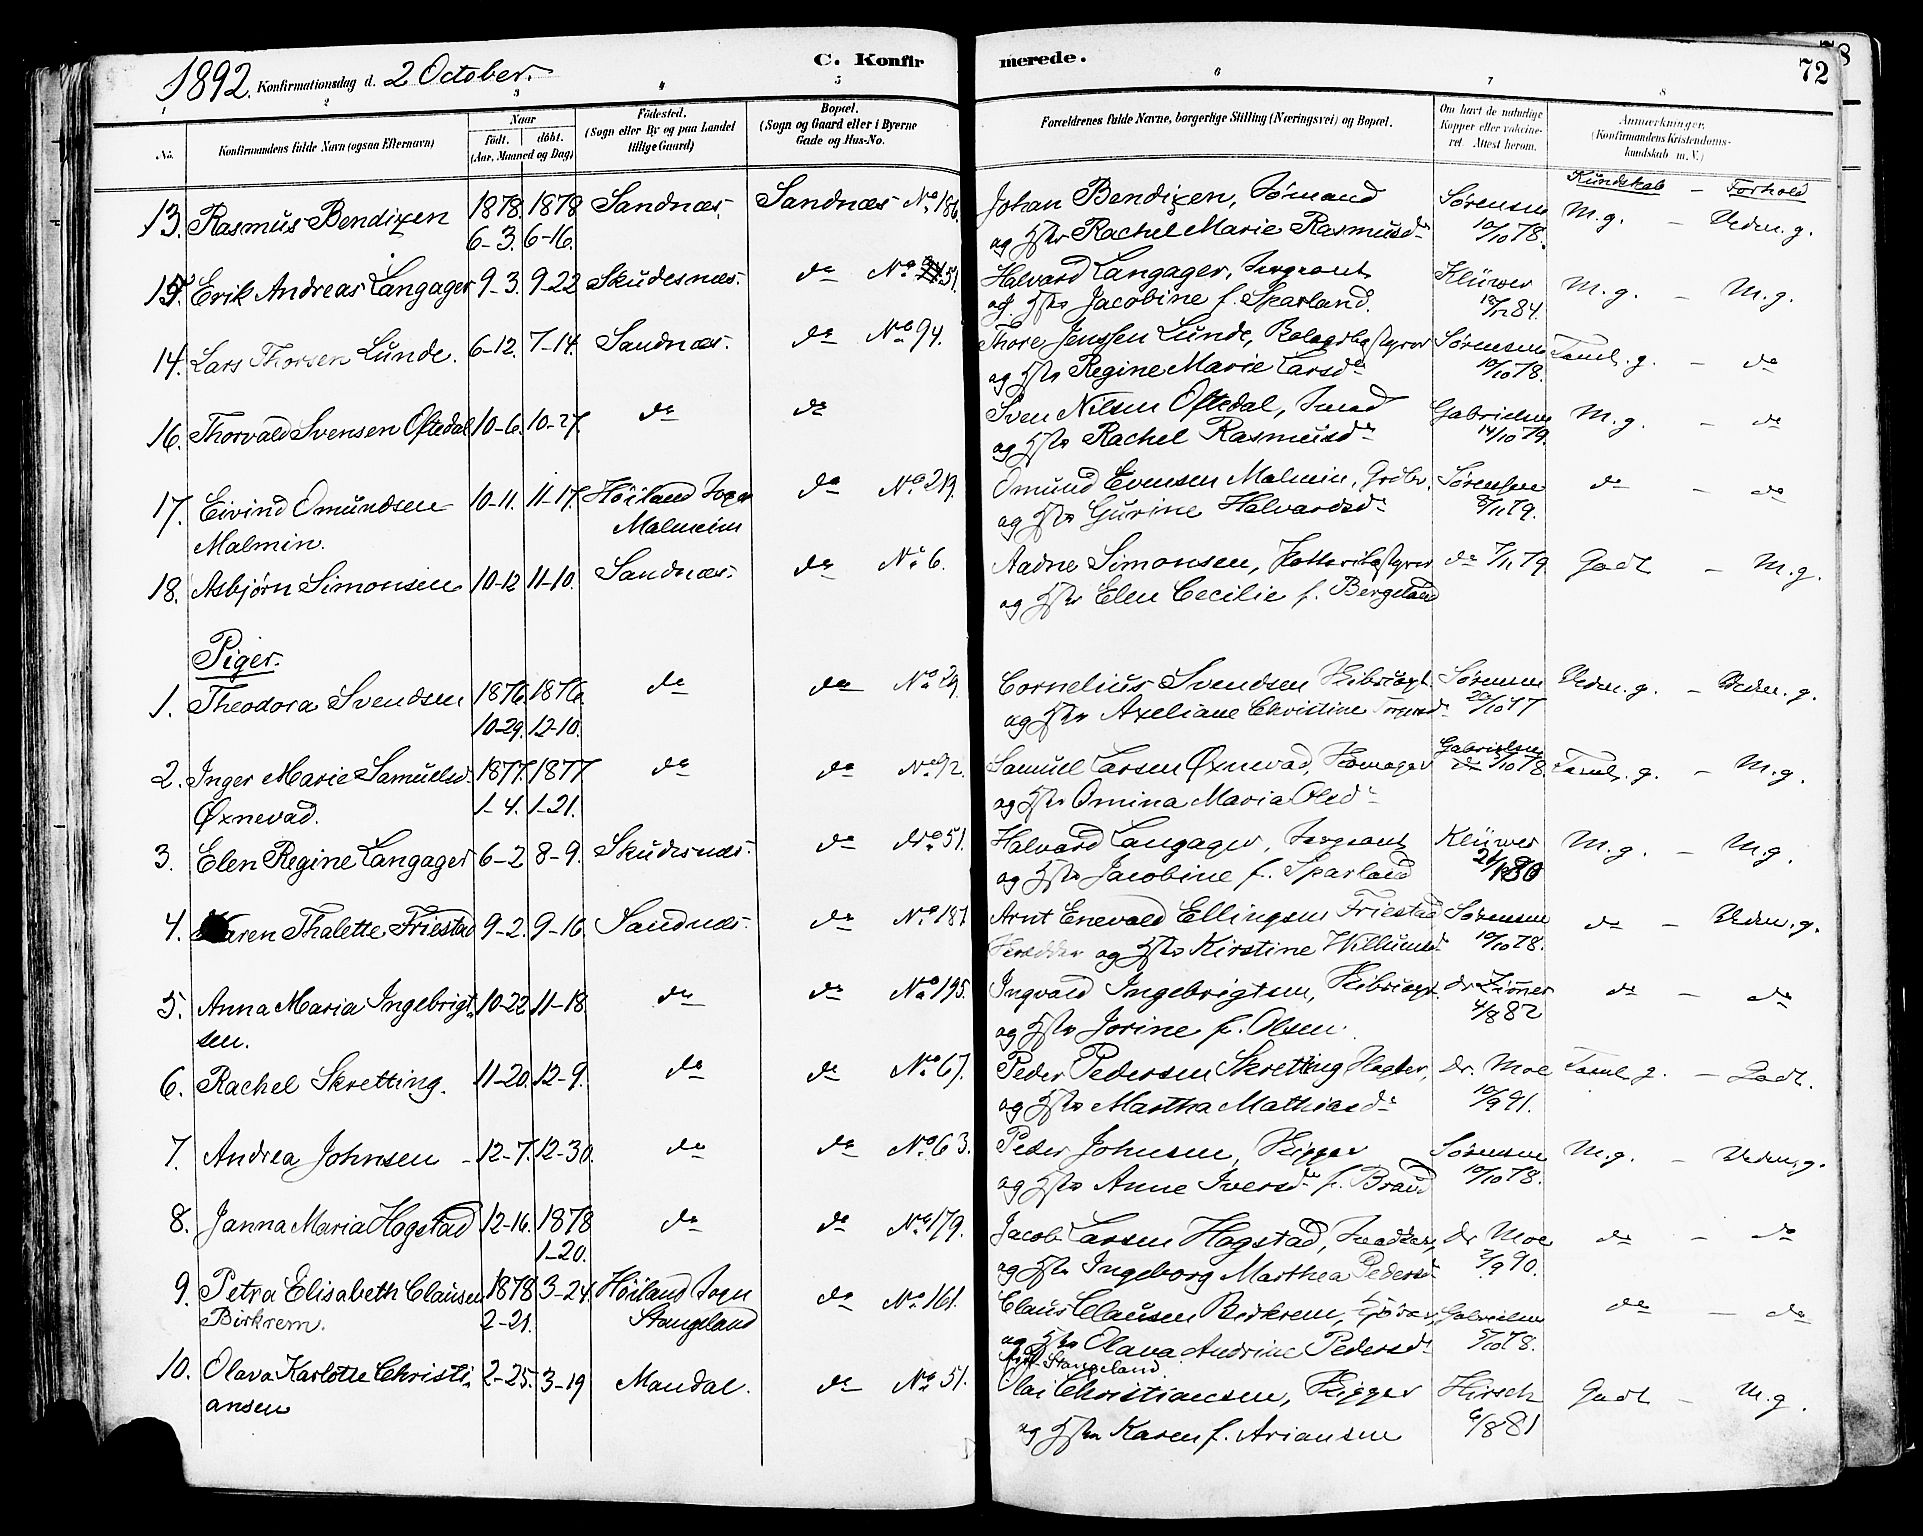 1892. Konfirmationsdag d. 2 October.
C. Konfirmerede.
72
1 2 3 4 5 6 7 8
No. Konfirmandens fulde Navn (ogsaa Efternavn)
Naar Født. døbt. (Aar, Maaned og Dag)
Fødested. (Sogn eller By og paa Landet tillige Gaard)
Bopæl. (Sogn og Gaard eller i Byerne Gade og Hus-No.
Forældrenes fulde Navne, borgerlige Stilling (Næringsvei) og Bopæl.
Om havt de naturlige Kopper eller vaccineret. Attest herom.
Anmærkninger. (Konfirmandens Kristendomskundskab m. V.)
Kundskab – Forhold
13. Rasmus Bendixen 1878. 1878 Sandnæs. Sandnæs No. 186. Johan Bendixen, Sømand Sørensen M. g. –
6–3. 6–16. og Hstr Rachel Marie Rasmusdr 10/10 78.
15. Erik Andreas Langager 9–3. 9–22 Skudesnæs. do No 51. Halvard Langager, Sergeant Klüwer M. g. – M. g.
og Hstr Jacobine f. Sparland. 84.
14. Lars Thorsen Lunde. 6–12. 7–14. Sandnæs. do No 94. Thore Jenssen Lunde, Sørensen Taml. g. – do
og Hstr Regine Marie Larsdr 10/10 78.
16. Thorvald Svensen Oftedal 10–6. 10–27. do do Sven Nilsen Oftedal, Smed Gabrielsen M. g. – do
og Hstr Rachel Rasmusdr 14/10 79.
17. Eivind Omundsen 10–11. 11–17. Höiland Sogn do No 219. Omund Evensen Malmin, do – do
Malmin. Malmeim og Hstr Gurine Halvardsdr
18. Asbjørn Simonsen 10–12 11–10. Sandnæs. do No 6. Aadne Simonsen, do 7/11 79 Godt – M. g.
og Hstr Elen Cecilie f. Bergeland
Piger.
1. Theodora Svendsen 1876. 1876. do do No 29. Cornelius Svendsen Sørensen –
10–29. 12–10. og Hstr Axeliane Christine 77
2. Inger Marie Samuelsd. 1877. 1877 do do No 92. Samuel Larsen Øxnevad, Gabrielsen Taml. g. – M. g.
Øxnevad. 1–4. 1–21. og Hstr Omina Maria Olsdr
3. Elen Regine Langager 6–2 8–9. Skudesnæs. do No 51. Halvard Langager, Sergeant Klüwer M. g. – M. g.
og Hstr Jacobine f. Sparland
4. Karen Thalette Friestad 9–2. 9–16. Sandnæs. do No 187 Arnt Enevald Ellingsen Friestad Sørensen do –
og Hstr Kirstine Willumsd. 10/10 78.
5. Anna Maria Ingebrigt- 10–22 11–18. do do No 195. Ingvald Ingebrigtsen, do – do
sen. og Hstr Jorine f. Olsen. 4/8 82
6. Rachel Skretting. 11–20. 12–9. do do No 67. Peder Pedersen Skretting dr. Moe Taml g. – Godt.
og Hstr Martha Mathiasdr 10/9 91.
7. Andrea Johnsen – 12–7. 12–30. do do No 63. Peder Johnsen, Skipper Sørensen M. g. –
og Hstr Anne Iversdr f. 10/10 78.
8. Janna Maria Hogstad 12–16. 1878 do do No 179. Jacob Larsen Hogstad, dr. Moe do – do
1–20. og Hstr Ingeborg Marthea 90.
9. Petra Elisabeth Clausen 1878 3–24. Höiland Sogn do No 161. Claus Clausen Birkrem, Gabrielsen do – do
Birkrem. 2–21. Stangeland og Hstr Olava Andrine Pedersdr 5/10 78.
Stangeland.
10. Olava Karlotte Christi- 2–25. 3–19 Mandal. do No 51. Christiansen, Skipper Hirsch Godt – M. g.
ansen og Hstr Karen f. Ariansen 6/8 81